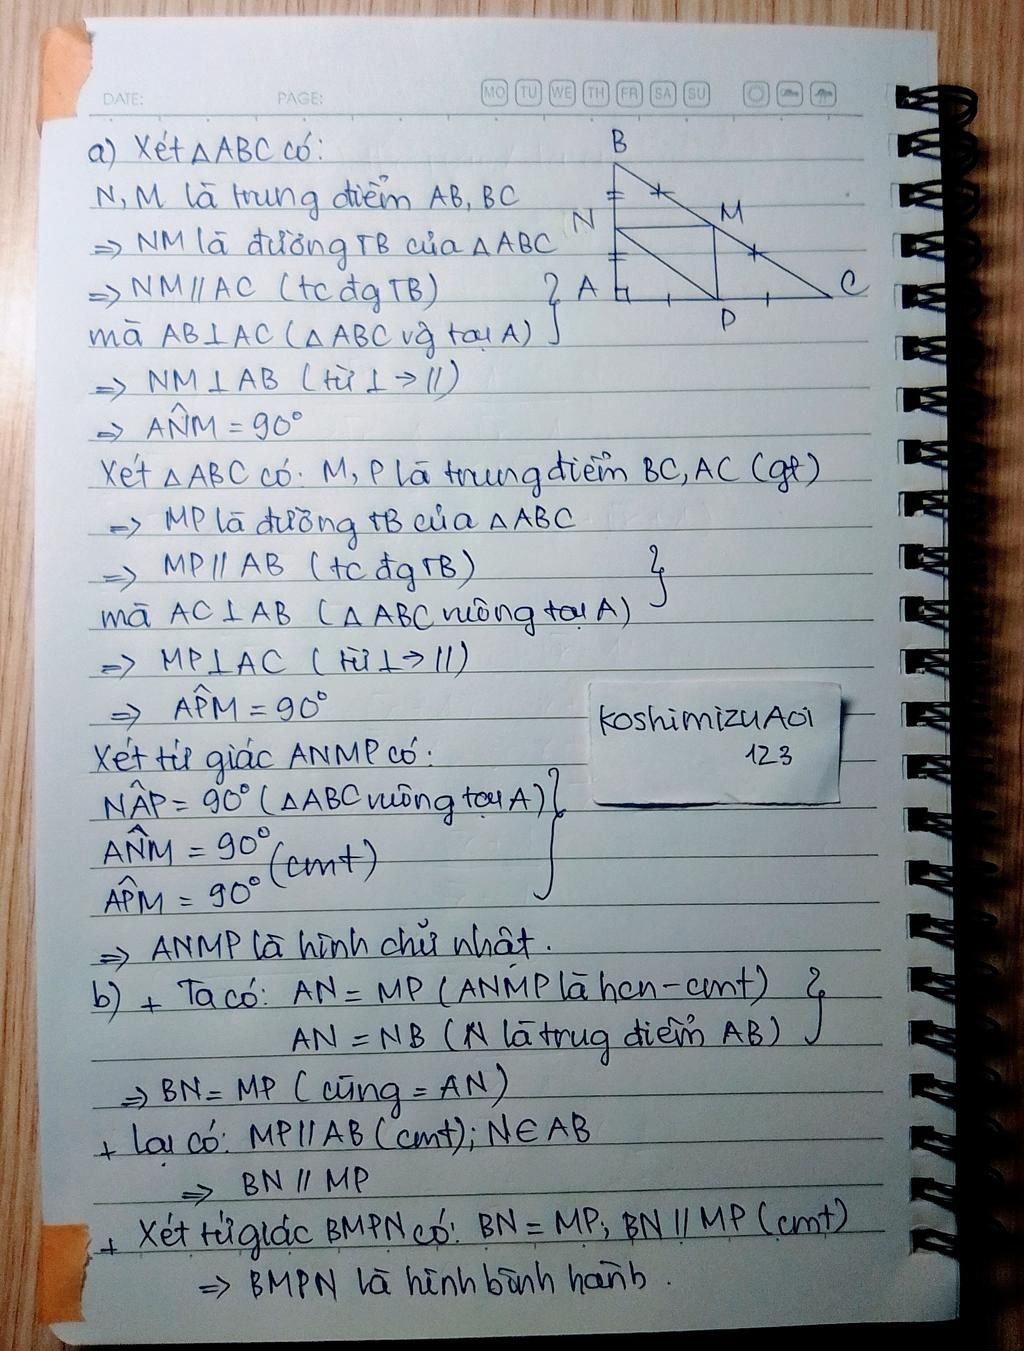 DATE: PAGE: MO TU WE TH FR SA SU
a) Xét △ABC có:
N, M là trung điểm AB, BC
⇒ NM là đường TB của △ABC
⇒ NM // AC (tc đg TB)
mà AB⊥AC (△ABC vg tại A)
⇒ NM⊥AB (từ ⊥→//)
⇒ AN̂M = 90°
Xét △ABC có: M, P là trung điểm BC, AC (gt)
⇒ MP là đường TB của △ABC
⇒ MP // AB (tc đg TB)
mà AC⊥AB (△ABC vuông tại A)
⇒ MP⊥AC (từ ⊥→//)
⇒ AP̂M = 90°
Xét tứ giác ANMP có:
NÂP = 90° (△ABC vuông tại A)
AN̂M = 90°
(cmt)
AP̂M = 90°
⇒ ANMP là hình chữ nhật.
b) + Ta có: AN = MP (ANMP là hcn - cmt)
AN = NB (N là trug điểm AB)
⇒ BN = MP (cùng = AN)
+ Lại có: MP // AB (cmt); N∈AB
⇒ BN // MP
+ Xét tứ giác BMPN có: BN = MP; BN // MP (cmt)
⇒ BMPN là hình bình hành.
B
N
M
A
C
P
KoshimizuAoi
123